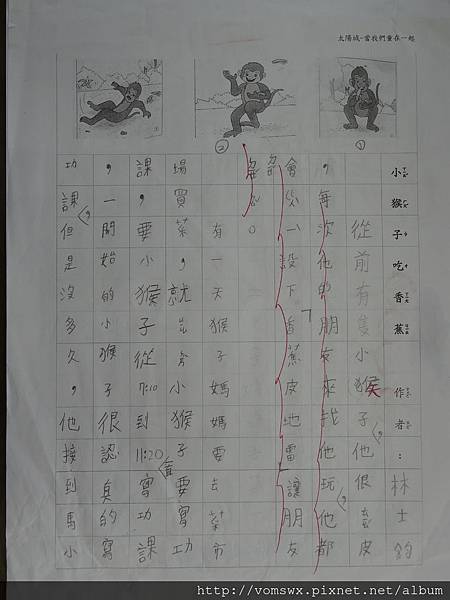 太陽城-當我們童在一起
③ ② ①
小猴子吃香蕉 作者：林士鈞
從前有隻小猴子，他很皮
，每次他的朋友來找他玩，他都
會設下「香蕉皮地雷讓朋友
有一天猴子媽媽要去菜市
場買菜，就告訴小猴子要寫功
課，要小猴子從7:10到11:20直寫功課
，一開始的小猴子很認真的寫
功課，但是沒多久，他接到馬小
http://vomswx.pixnet.net/album